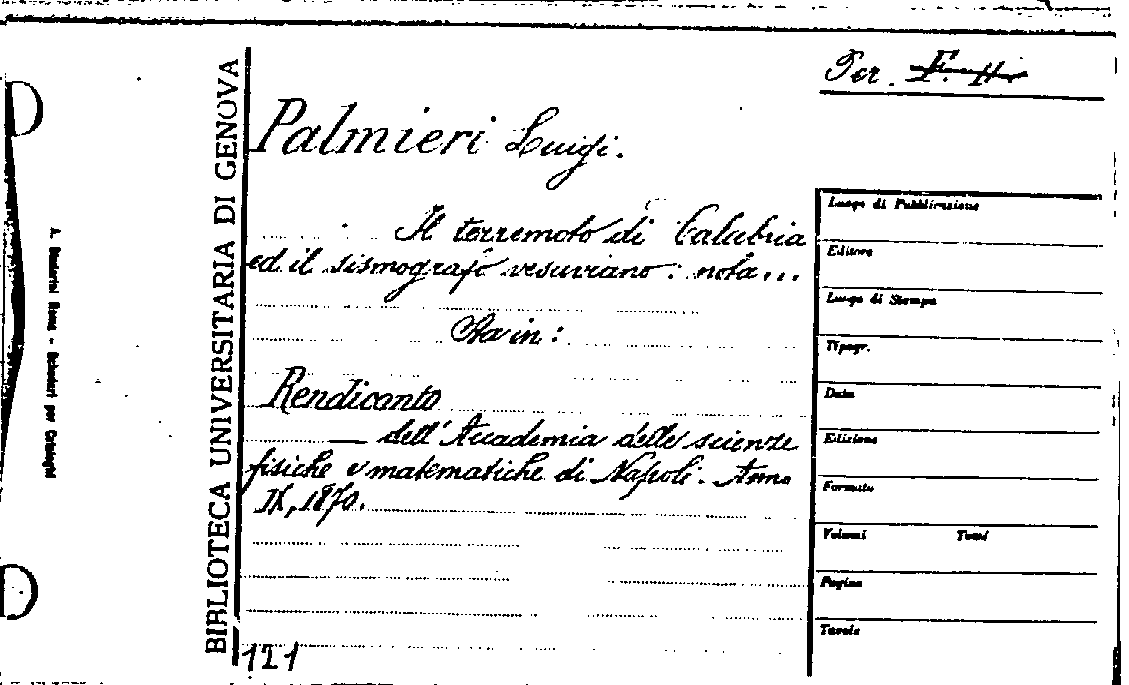 Per. F. H
Palmieri Luigi.
Il terremoto di Calabria
ed il sismografo vesuviano: nota...
Sta in:
Rendiconto
— dell'Accademia delle scienze
fisiche e matematiche di Napoli. Anno
IX, 1870.
121
BIBLIOTECA UNIVERSITARIA DI GENOVA
A. Roma - Schedari per Cataloghi
Luogo di Pubblicazione
Editore
Luogo di Stampa
Tipogr.
Data
Edizione
Formato
Volumi Tomi
Pagine
Tavole